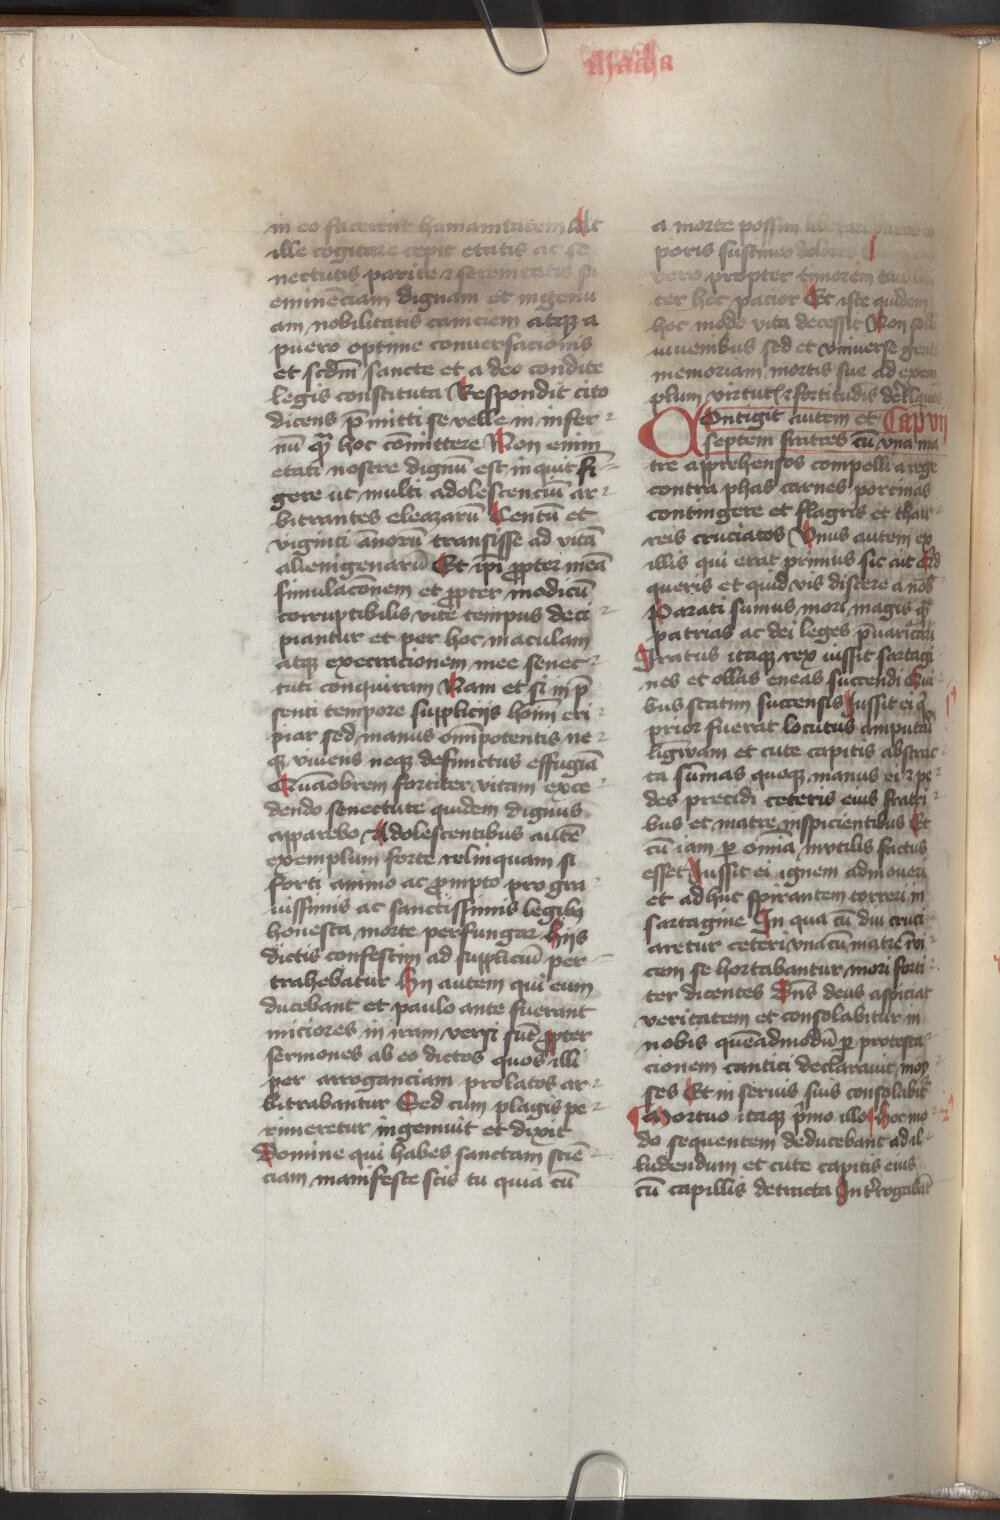 in eo facerent humanitatem At
ille cogitare cepit etatis ac se
nectutis parite ⁊ serenitatis su
eminēciam dignam et ingenu
am nobilitatis caniciem atqꝫ a
puero optime conuersacionis
et scd̄m sancte et a deo condite
legis constituta Respondit cito
dicens p̄mitti se velle in infer
nū qȝ hoc cōmittere Non enim
etati nostre dignū est inquit fi
gere ut multi adolescenciū ar
bitrantes eleazarū Centū et
viginti anorū transisse ad vitā
alienigenarū Et ip̄i ꝓpter meā
simulacōnem et ꝓpter modicū
corruptibilis vite tempus deci
piantur et per hoc maculam
atqꝫ execracionem mee senec
tuti conquiram Nam et si in p̄
senti tempore supplicijs hoīm eri
piar sed manus om̄ipotentis ne
qꝫ viuens neqꝫ defunctus effugiā
Quāobrem fortiter vitam exce
dendo senectute quidem dignus
apparebo Adolescentibus autē
exemplum forte relinquam si
forti animo ac ꝓmpto pro gra
uissimis ac sanctissimis legibꝫ
honesta morte perfungar hijs
dictis confestim ad suppliciū per
trahebatur Hii autem qui eum
ducebant et paulo ante fuerant
miciores in iram versi sūt ꝓpter
sermones ab eo dictos quos illi
per arroganciam prolatos ar
bitrabantur Sed cum plagis pe
rimeretur ingemuit et dixit
Domine qui habes sanctam sciē
ciam manifeste scis tu quia cū
a morte possim liberari
poris sustineo dolores
vero propter timorem
ter hec pacior Et iste quidem
hoc modo vita decessit Non sol
iuuenibus sed et vniuerse gent
memoriam mortis sue ad exem
plum virtut ⁊ fortitudis
Contigit autem et Cap vij
septem fratres cū vna ma
tre apprehensos compelli a rege
contra phas carnes porcinas
contingere et flagris et thau
reis cruciatos Unus autem ex
illis qui erat primus sic ait Qd
queris et quid vis discere a nob
Parati sumus mori magis qȝ
patrias ac dei leges p̄uaricari
Iratus itaqꝫ rex iussit sartagi
nes et ollas eneas succendi Qui
bus statim succensis Iussit ei q
prior fuerat locutus amputari
ligwam et cute capitis abstrac
ta summas quoqꝫ manus ei ⁊ pe
des precidi ceteris eius fratri
bus et matre inspicientibus Et
cū iam p omīa inutilis factus
esset Iussit ei ignem admoueri
et adhuc spirantem torreri in
sartagine In qua cū diu cruci
aretur ceteri vna cū matre īui
cem se hortabantur mori forti
ter dicentes Dn̄s deus aspiciat
veritatem et consolabitur in
nobis quēadmodū p protesta
cionem cantici declarauit moy
ses Et in seruis suis consolabit
Mortuo itaqꝫ p̄mo illo hoc mo
do sequentem deducebant ad il
ludendum et cute capitis eius
cū capillis detracta Int̄rogabāt